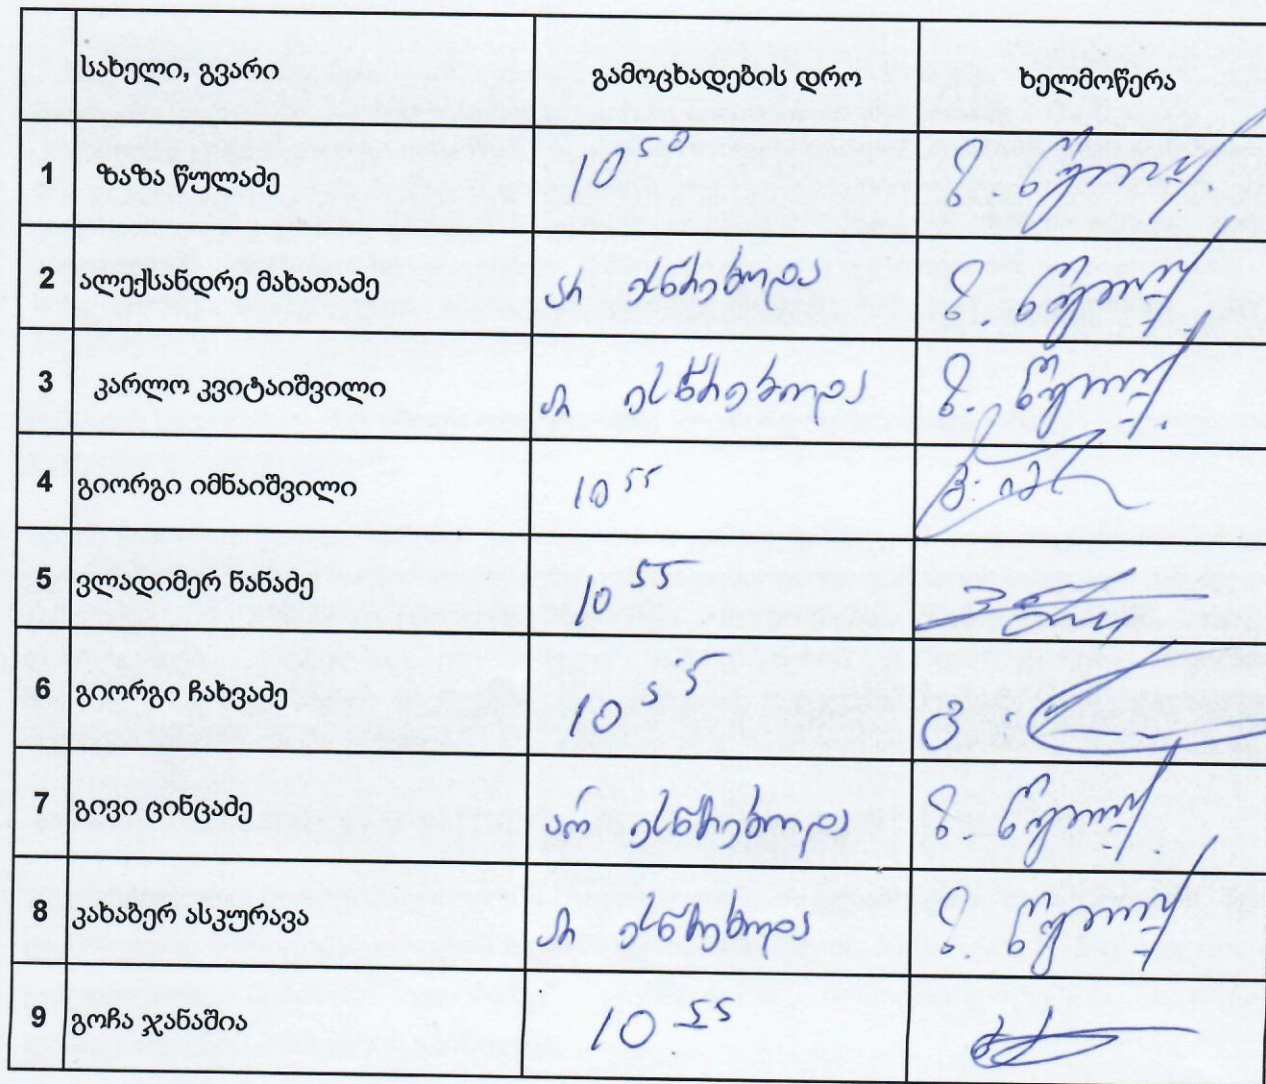 სახელი, გვარი გამოცხადების დრო ხელმოწერა
1 ზაზა წულაძე 10 50 ზ. წულაძე
2 ალექსანდრე მახათაძე არ ესწრებოდა ზ. წულაძე
3 კარლო კვიტაიშვილი არ ესწრებოდა ზ. წულაძე
4 გიორგი იმნაიშვილი 10 55
5 ვლადიმერ ნანაძე 10 55
6 გიორგი ჩახვაძე 10 55
7 გივი ცინცაძე არ ესწრებოდა ზ. წულაძე
8 კახაბერ ასკურავა არ ესწრებოდა ზ. წულაძე
9 გოჩა ჯანაშია 10 55